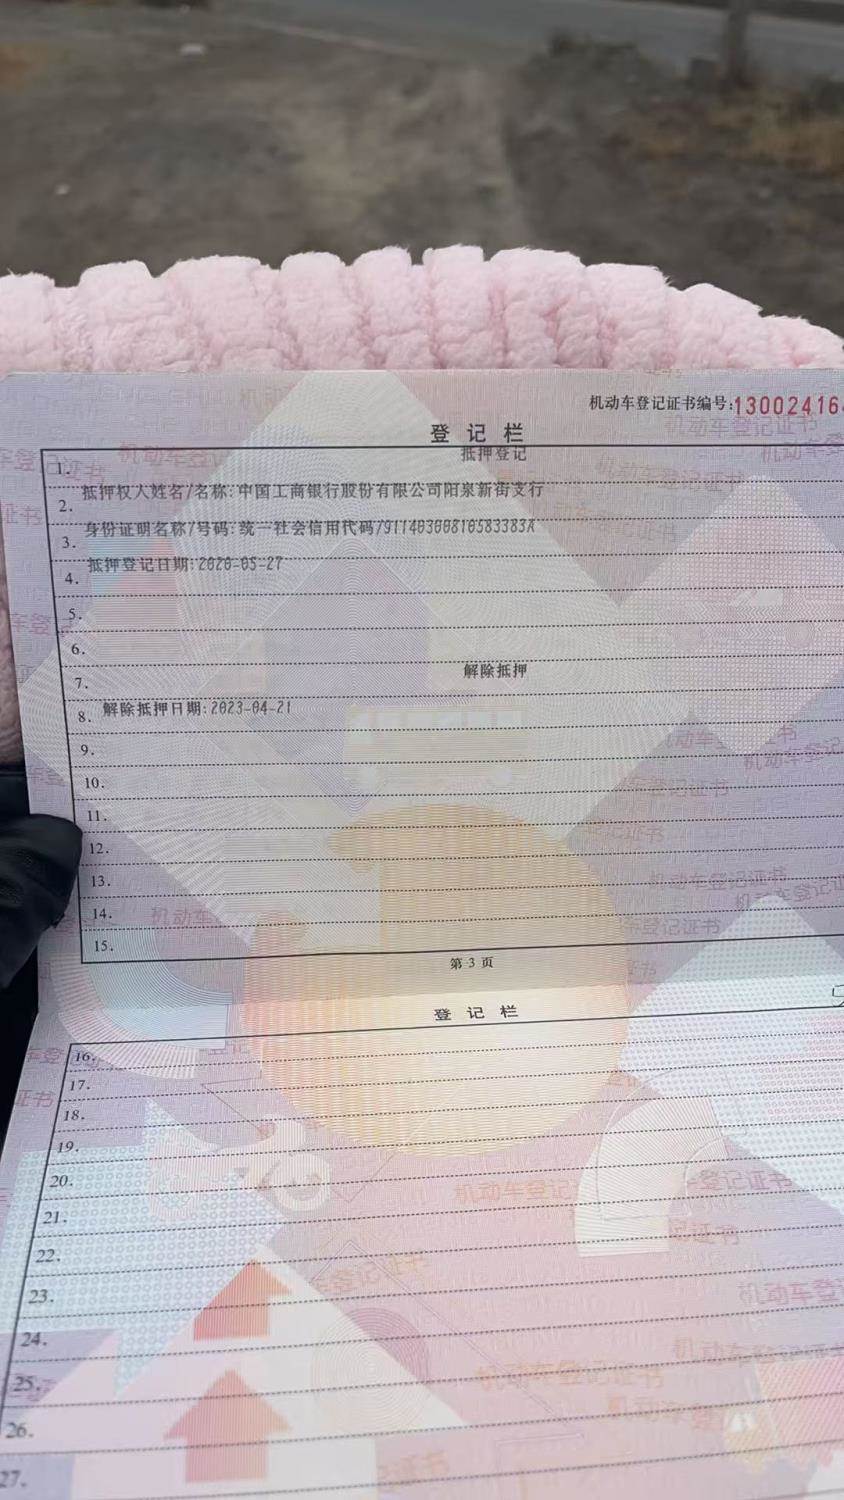 机动车登记证书编号:13002416
登 记 栏
1. 抵押登记
2. 抵押权人姓名/名称:中国工商银行股份有限公司阳泉新街支行
3. 身份证明名称/号码:统一社会信用代码/91140300810583383A
4. 抵押登记日期:2020-05-27
5.
6.
7. 解除抵押
8. 解除抵押日期:2023-04-21
9.
10.
11.
12.
13.
14.
15.
第 3 页
登 记 栏
16.
17.
18.
19.
20.
21.
22.
23.
24.
25.
26.
27.